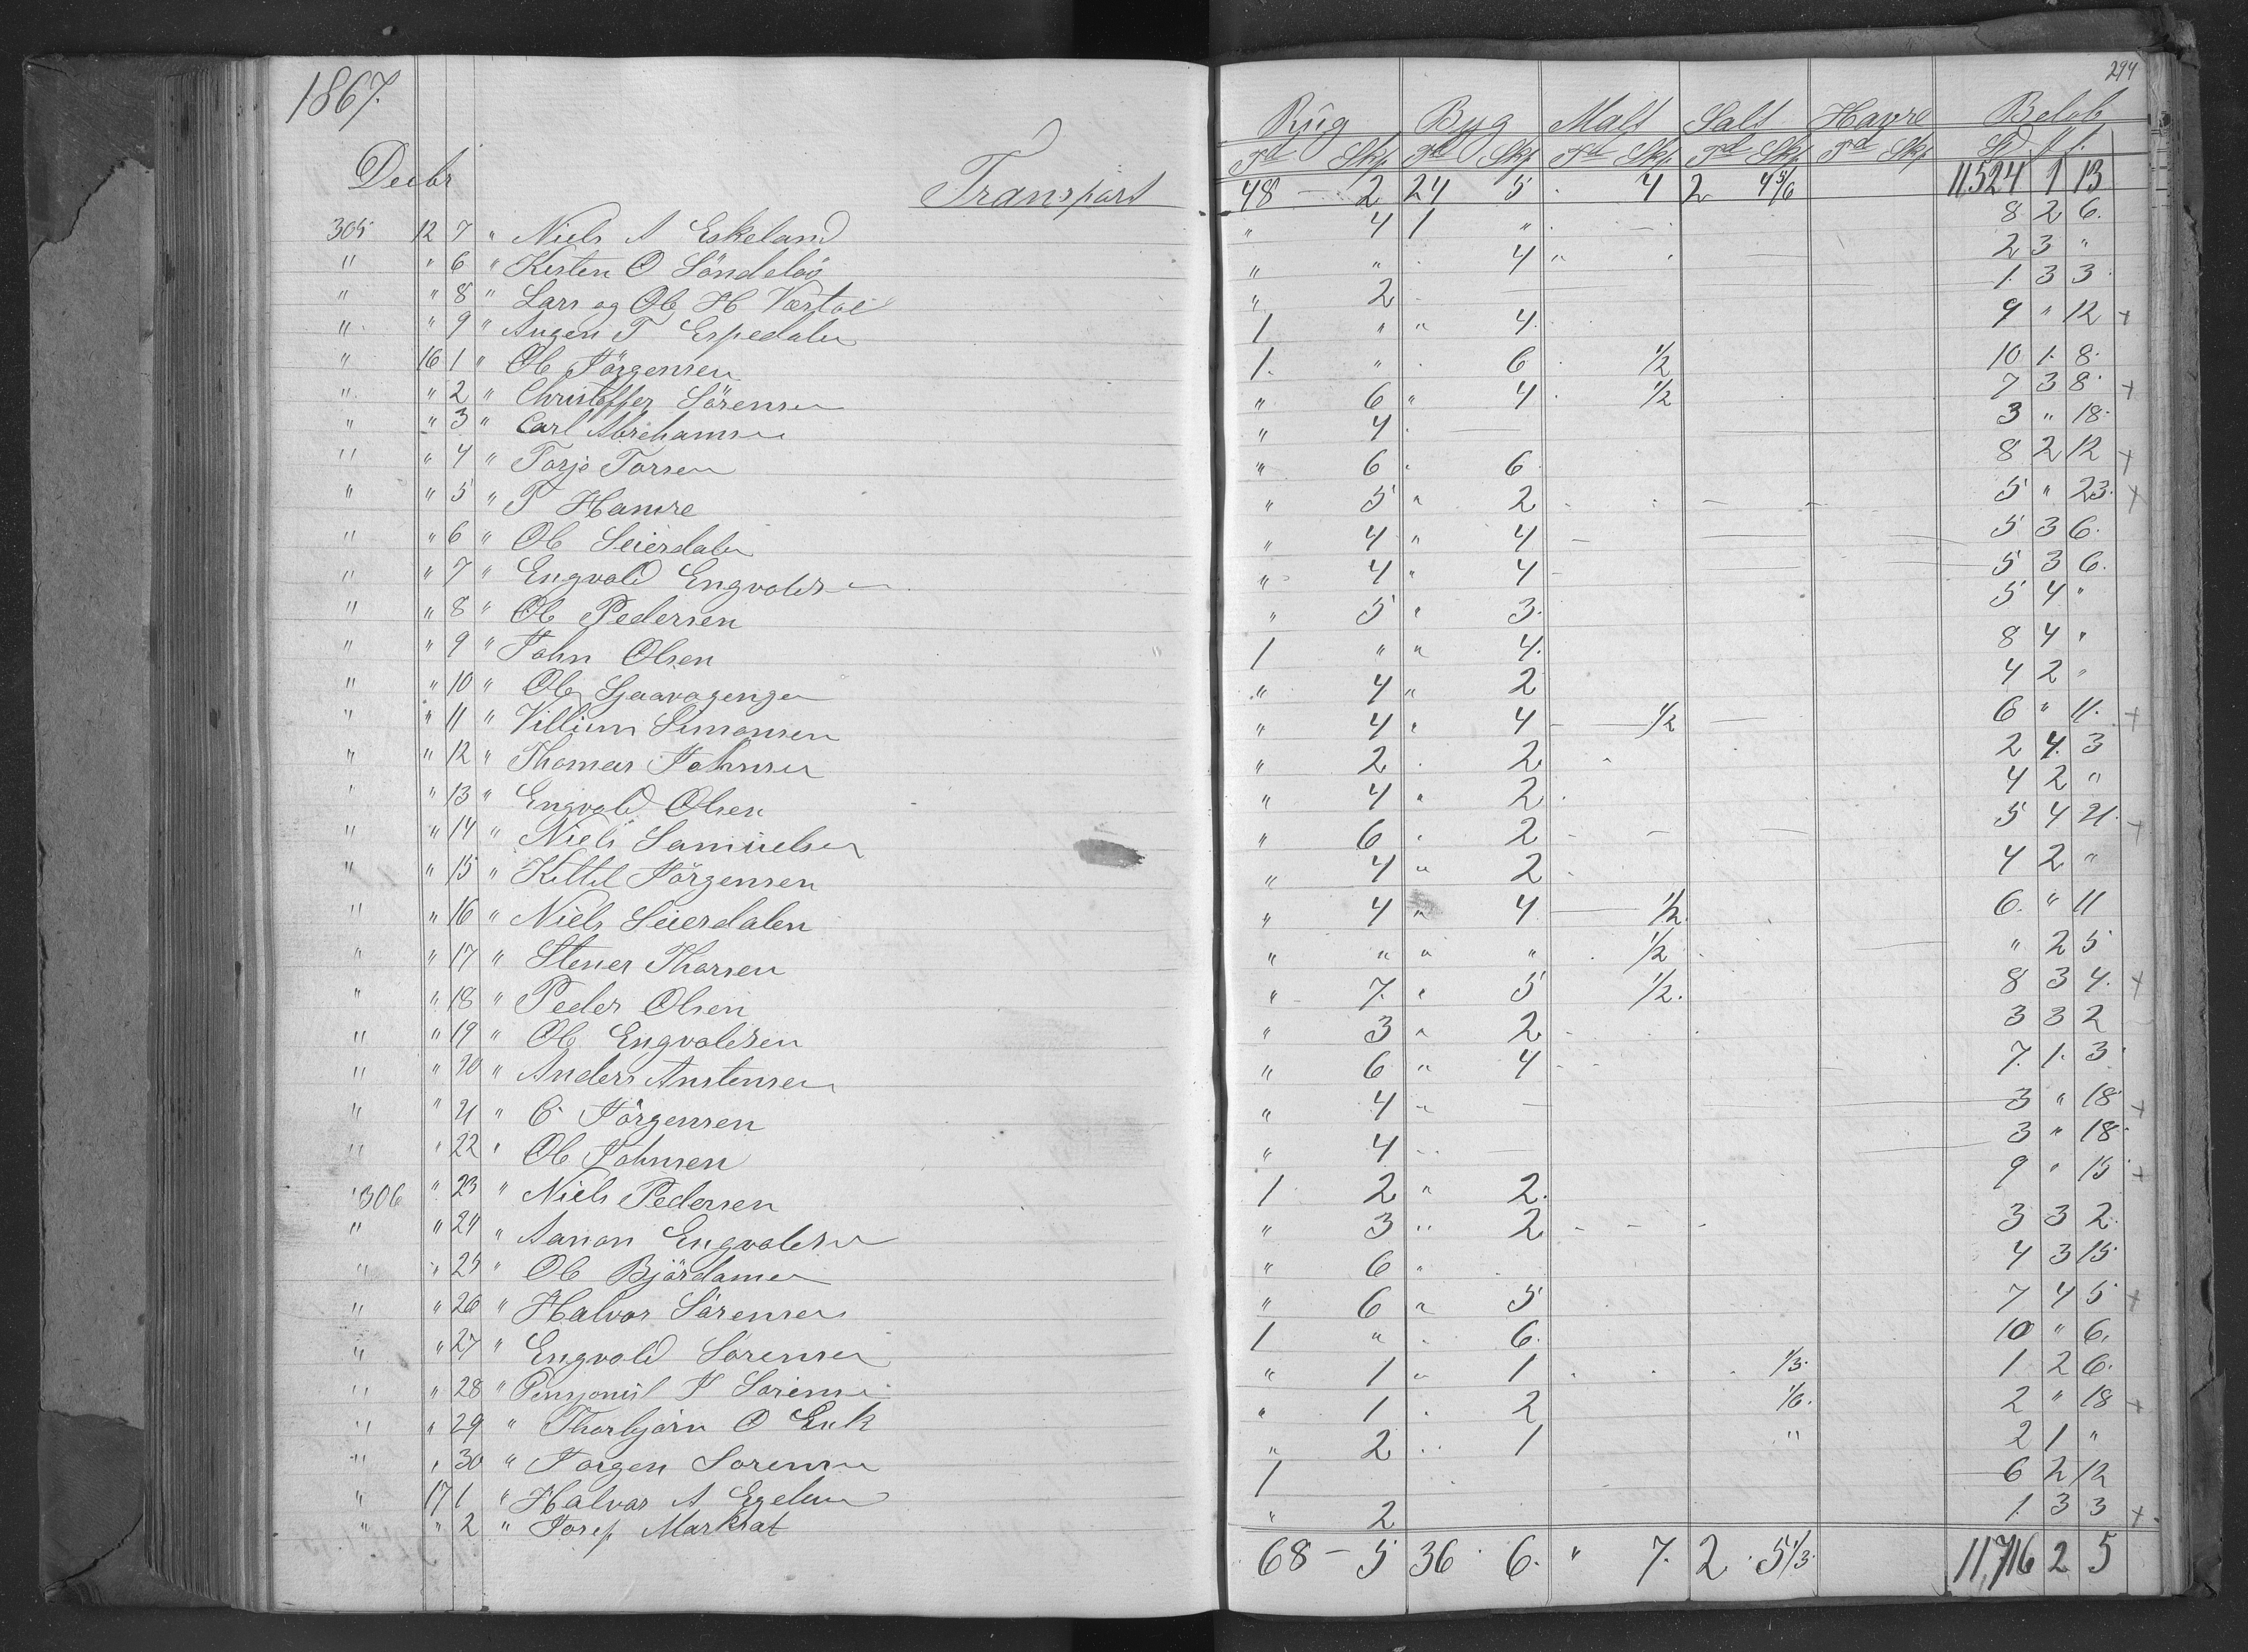 1867.
294
Rüg Byg Malt Salt Havre Beløb
Td Skp. Td Skp. Td Skp. Td Skp. Td Skp. Spd
Decbr Transport 48 - 2 24 5 . 4 2 4 5/6 11,524 1 13
305 12 7 " Niels A Eskeland " 4 1 " 8 2 6.
" " 6 " Kisten O " " . 4 " 2 3 "
" " 8 " Lars og Ole H " 2 1. 3 3.
" " 9 " Augen T Espedalen 1 " " 4. 9 " 12 +
" 16 1 " Ole Jörgensen 1. " . 6 . 1/2 10 1. 8.
" " 2 " Christoffer Sörensen " 6 " 4 . 1/2 7 3 8. +
" " 3 " Carl Abrehamsen " 4 . 3 " 18.
" " 4 " Torje Torsen " 6 . 6 8 2 12 +
" " 5 " T Hamre " 5 " 2 5 " 23. +
" " 6 " Ole Seierdalen " 4 " 4 5 3 6.
" " 7 " Engvald Engvoldsen " 4 " 4 5 3 6.
" " 8 " Ole Pedersen " 5 " 3. 5 4 "
" " 9 " John Olsen 1 " " 4. 8 4 "
" " 10 " Ole " 4 " 2 4 2 "
" " 11 " Villium Simonsen " 4 " 4 - 1/2 6 " 11. +
" " 12 " Thomas Johnsen " 2 . 2 2 4. 3
" " 13 " Engvold Olsen " 4 " 2 . 4 2 "
" " 14 " Niels Samüelsen " 6 . 2 5 4 21. +
" " 15 " Kittil Jörgensen " 4 " 2 . 4 2 "
" " 16 " Niels Seierdalen " 4 " 4 1/2. 6. " 11
" " 17 " Stener Thorsen " " " " . 1/2 " 2 5
" " 18 " Peder Olsen " 7. " 5 1/2. 8 3 4. +
" " 19 " Ole Engvoldsen " 3 " 2 3 3 2
" " 20 " Anders Anstensen " 6 " 4 7. 1. 3.
" " 21 " C Jörgensen " 4 " 3 " 18 +
" " 22 " Ole Johnsen " 4 3 " 18.
306 " 23 " Niels Pedersen 1 2 " 2. 9 " 15 +
" " 24 " Aanon Engvoldsen " 3 " 2 3 3 2.
" " 25 " Ole Björdamen " 6 " 4 3 15.
" " 26 " Halvor Sörensen " 6 " 5 7 4 5 +
" " 27 " Engvold Sörensen 1 " . 6. 10 " 6.
" " 28 " J Sörensen " 1 " 1 1/3. 1 2 6.
" " 29 " Thorbjörn O Eeik " 1 . 2 1/6. 2 " 18 +
" " 30 " Jörgen Sörensen " 2 " 1 " 2 1 "
" 17 1 " Halvor A Egeland 1 6 2 12
" " 2 " Josep Markrat " 2 1. 3 3 +
68 - 5 36 . 6. " 7. 2 . 5 1/3. 11,716 2 5